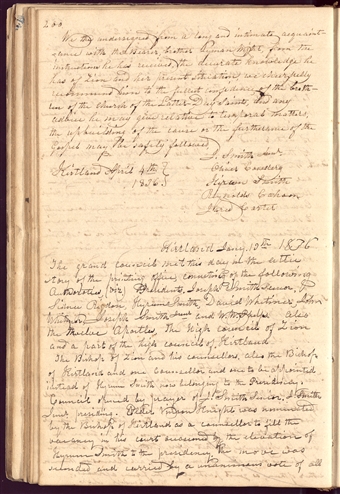 200
We the undersigned from a long and intimate acquaint-
ance with the Bearer, brother Lyman Wight, from the
instructions he has received, the accurate knowledge he
has of Zion and her present situation, can cheerfully
recommend him to the fullest confidence of the breth-
ren of the church of the Latter Day Saints, and any
advice he may give relative to temporal matters,
the upbuilding of the cause or the furtherance of the
Gospel may be safely followed
Kirtland April 4th
1836
J. Smith Jun
Oliver Cowdery
Hyrum Smith
Reynolds Cahoon
Jared Carter
Kirtland Jany. 13th 1836
The grand council met this day in the upper
story of the printing office, consisting of the following
Authorities (viz) Presidents, Joseph Smith Senior,
Sidney Rigdon Hyrum Smith David Whitmer John
Whitmer, Joseph Smith Junr and W. W. Phelps. Also
the twelve Apostles the high council of Zion
and a part of the high council of Kirtland.
The Bishop of Zion and his counsellors, also the Bishop
of Kirtland and one Councellor and one to be appointed
instead of Hyrum Smith now belonging to the Presidency.
Council opened by prayer of J. Smith Senior, J. Smith
Junr. presiding. Elder Vinson Knight was nominated
by the Bishop of Kirtland as a councellor to fill the
vacancy in his court occasioned by the elevation of
Hyrum Smith to the presidency, the move was
seconded and carried by a unanimous vote of all